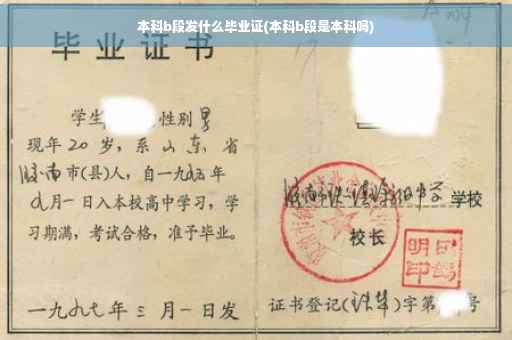 本科b段发什么毕业证(本科b段是本科吗)
毕业证书
学生 性别男
现年20岁，系山东，省
济南市(县)人，自一九九五年
九月一日入本校高中学习，学
习期满，考试合格，准予毕业。
一九九七年三月一日发
学校
校长
证书登记( )字第 号